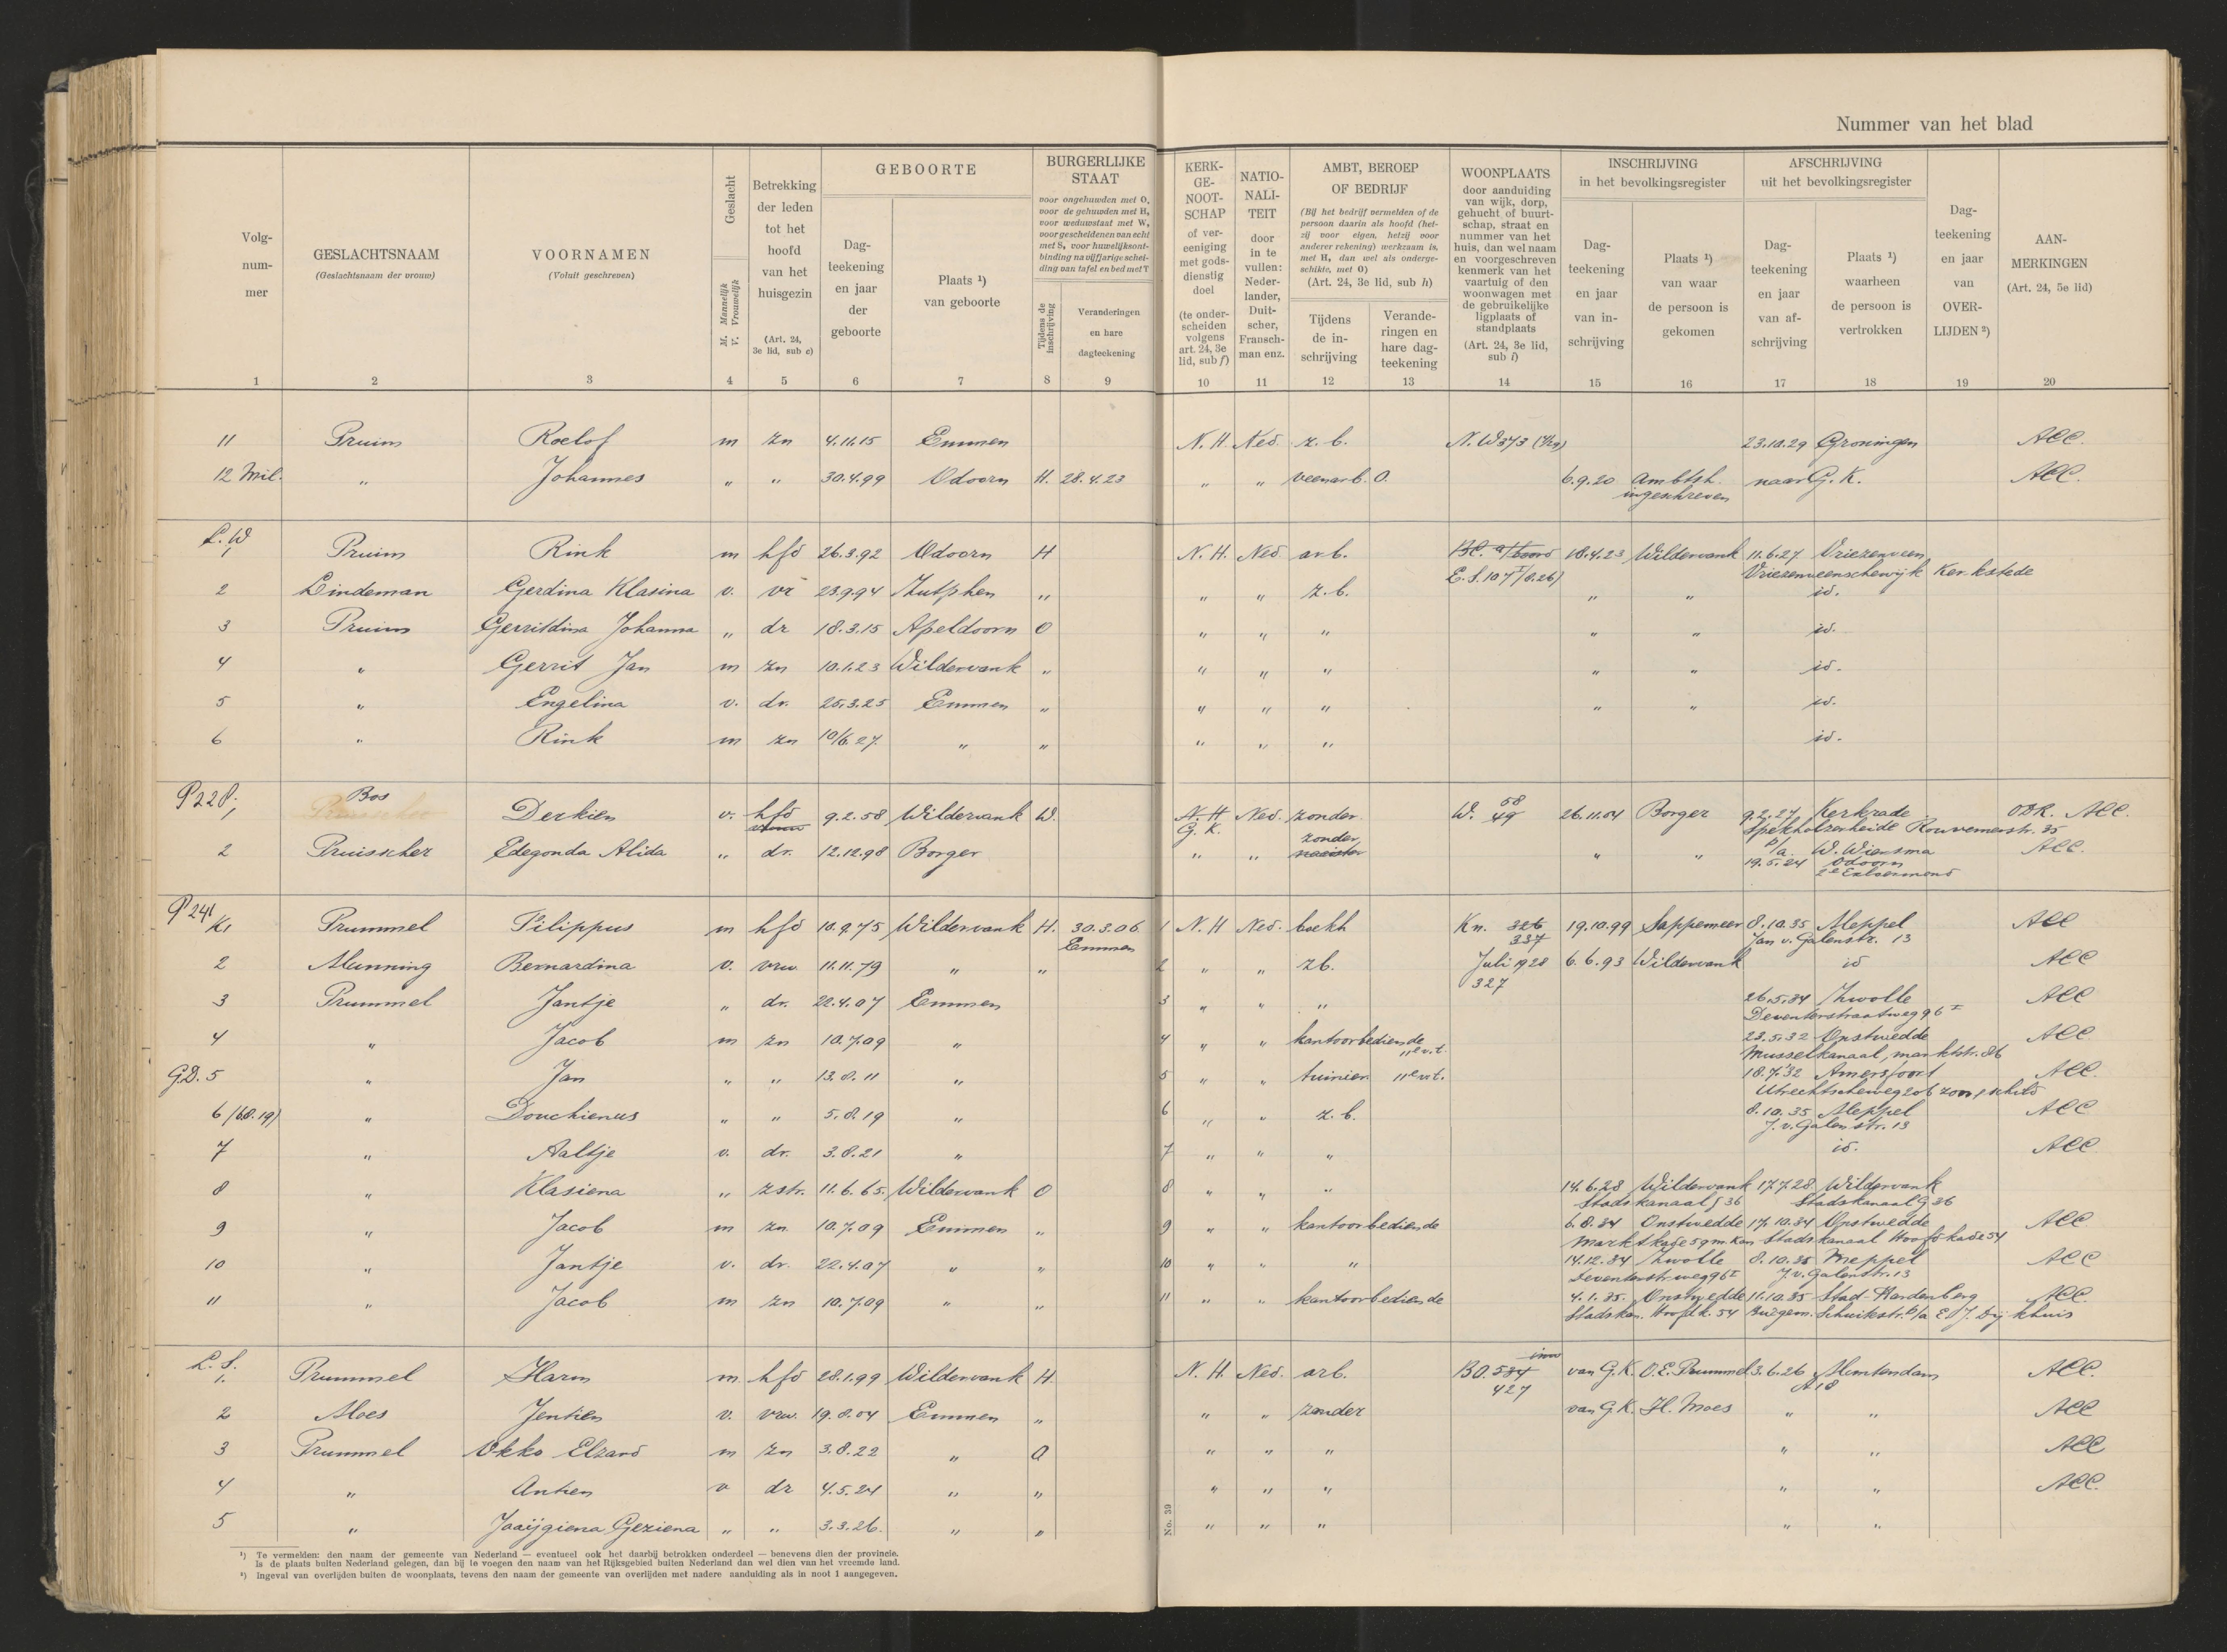 Nummer van het blad
Volg-
num-
mer
GESLACHTSNAAM
(Geslachtsnaam der vrouw)
VOORNAMEN
(Voluit geschreven)
Geslacht
M. Mannelijk
V. Vrouwelijk
Betrekking
der leden
tot het
hoofd
van het
huisgezin
(Art. 24,
3e lid, sub e)
GEBOORTE
Dag-
teekening
en jaar
der
geboorte
Plaats ¹)
van geboorte
BURGERLIJKE
STAAT
voor ongehuwden met O,
voor de gehuwden met H,
voor weduwstaat met W,
voor gescheidenen van echt
met S, voor huwelijksont-
binding na vijfjarige schei-
ding van tafel en bed met T
Tijdens de
inschrijving
Veranderingen
en hare
dagteekening
KERK-
GE-
NOOT-
SCHAP
of ver-
eeniging
met gods-
dienstig
doel
(te onder-
scheiden
volgens
art. 24, 3e
lid, sub f)
NATIO-
NALI-
TEIT
door
in te
vullen:
Neder-
lander,
Duit-
scher,
Fransch-
man enz.
AMBT, BEROEP
OF BEDRIJF
(Bij het bedrijf vermelden of de
persoon daarin als hoofd (het-
zij voor eigen, hetzij voor
anderer rekening) werkzaam is,
met H, dan wel als onderge-
schikte, met O)
(Art. 24, 3e lid, sub h)
Tijdens
de in-
schrijving
Verande-
ringen en
hare dag-
teekening
WOONPLAATS
door aanduiding
van wijk, dorp,
gehucht of buurt-
schap, straat en
nummer van het
huis, dan wel naam
en voorgeschreven
kenmerk van het
vaartuig of den
woonwagen met
de gebruikelijke
ligplaats of
standplaats
(Art. 24, 3e lid,
sub i)
INSCHRIJVING
in het bevolkingsregister
Dag-
teekening
en jaar
van in-
schrijving
Plaats ¹)
van waar
de persoon is
gekomen
AFSCHRIJVING
uit het bevolkingsregister
Dag-
teekening
en jaar
van af-
schrijving
Plaats ¹)
waarheen
de persoon is
vertrokken
Dag-
teekening
en jaar
van
OVER-
LIJDEN ²)
AAN-
MERKINGEN
(Art. 24, 5e lid)
1 2 3 4 5 6 7 8 9 10 11 12 13 14 15 16 17 18 19 20
11 Pruim Roelof m zn 4.11.15 Emmen N. H. Ned. z. b. N. W 373 23.10.29 Groningen ACC.
12 Mil. " Johannes " " 30.4.99 Odoorn H. 28.4.23 " " veenarb. O. 6.9.20 Ambtsh. naar G. K. ACC.
ingeschreven
L. W
1 Pruim Rink m hfd 26.3.92 Odoorn H N. H. Ned arb. 18.4.23 Wildervank 11.6.27 Vriezenveen
E. S. 107 Vriezenveenschewijk Kerkstede
2 Lindeman Gerdina Klasina v. vr 23.9.94 Zutphen " " " z. b. " " id.
3 Pruim Gerritdina Johanna " dr 18.3.15 Apeldoorn O " " " " " id.
4 " Gerrit Jan m zn 10.1.23 Wildervank " " " " " " id.
5 " Engelina v. dr. 25.3.25 Emmen " " " " " " id.
6 " Rink m zn 10/6.27. " " " " " id.
P228; Bos Derkien v. hfd 9.2.58 Wildervank W. N. H Ned. zonder W. 49 58 26.11.04 Borger 9.2.27 Kerkrade ODR. ACC.
G. K. Spekholzerheide Rouvemerstr. 35
zonder p/a. W. Wiersma
2 Pruisscher Edegonda Alida " dr. 12.12.98 Borger " " naaister " " 19.5.24 Odoorn ACC.
2e Exloermond
P241
K1 Prummel Filippus m hfd 10.9.75 Wildervank H. 30.3.06 1 N. H Ned. boekh Kn. 326 19.10.99 Sappemeer 8.10.35 Meppel ACC
Emmen 337 Jan v. Galenstr. 13
2 Manning Bernardina v. vrw. 11.11.79 " " 2 " " zb. Juli 1928 6.6.93 Wildervank id ACC
327
3 Prummel Jantje " dr. 22.4.07 Emmen 3 " " " 26.5.34 Zwolle ACC
Deventerstraatweg 96 I
4 " Jacob m zn 10.7.09 " 4 " " kantoorbediende 23.5.32 Onstwedde ACC
Musselkanaal, marktstr. 86
G.D. 5 " Jan " " 13.8.11 " 5 " " tuinier 18.7.32 Amersfoort ACC.
Utrechtscheweg 206
6 (6.8.19) " Douchienus " " 5.8.19 " 6 " " z. b. 8.10.35 Meppel ACC
J. v. Galenstr. 13
7 " Aaltje v. dr. 3.8.21 " 7 " " " id. ACC
8 " Klasiena " zstr. 11.6.65. Wildervank O 8 " " " 14.6.28 Wildervank 17.7.28 Wildervank
Stadskanaal J 36 Stadskanaal G 36
9 " Jacob m zn. 10.7.09 Emmen " 9 " " kantoorbediende 6.8.34 Onstwedde 17.10.34 Onstwedde ACC
Marktkade 59 m. kan Stadskanaal Hoofdkade 54
10 " Jantje v. dr. 22.4.07 " " 10 " " " 14.12.34 Zwolle 8.10.35 Meppel ACC
Deventerstr.weg 96 I J. v. Galenstr. 13
11 " Jacob m zn 10.7.09 " " 11 " " kantoorbediende 4.1.35. Onstwedde 11.10.35 Stad-Hardenberg ACC.
Stadskan. Hoofdk. 54 Burgem. Schuikstr. p/a E J. Dijkhuis
L. S.
1. Prummel Harm m. hfd 28.1.99 Wildervank H. N. H. Ned. arb. BO. 534 van G. K. O. E. Prummel 3.6.26 Muntendam ACC.
427 A 18
2 Moes Jentien v. vrw. 19.8.04 Emmen " " " zonder van G. K. H. Moes " " ACC
3 Prummel Okko Elzard m zn 3.8.22 " O " " " " " ACC
4 " Antien v dr 4.5.24 " " " " " " " ACC.
5 " Jaaijgiena Geziena " " 3.3.26. " " " " " " "
No. 39
¹) Te vermelden: den naam der gemeente van Nederland — eventueel ook het daarbij betrokken onderdeel — benevens dien der provincie.
Is de plaats buiten Nederland gelegen, dan bij te voegen den naam van het Rijksgebied buiten Nederland dan wel dien van het vreemde land.
²) Ingeval van overlijden buiten de woonplaats, tevens den naam der gemeente van overlijden met nadere aanduiding als in noot 1 aangegeven.